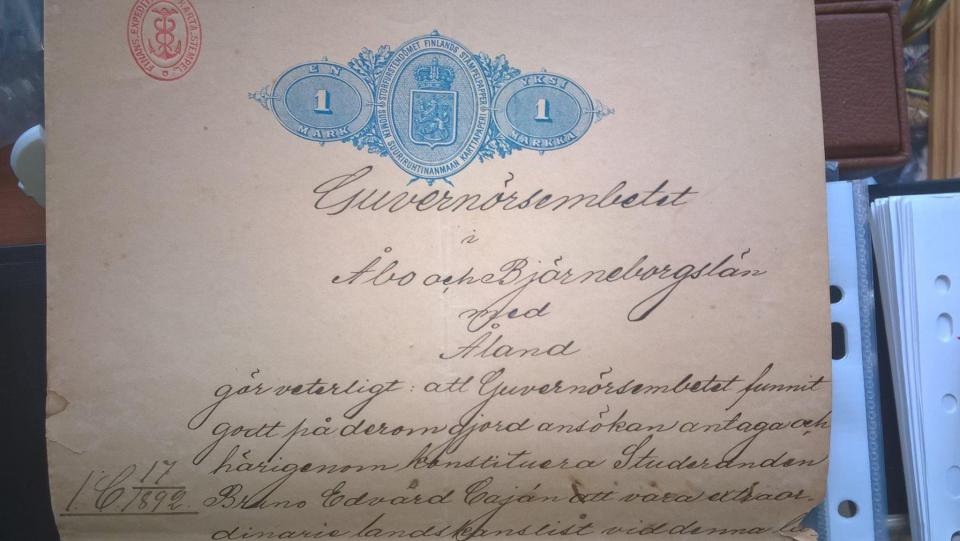 FINANS.EXPEDIT KARTA.STEMPEL
STORFURSTENDÖMET FINLANDS STÄMPELPAPPER
SUOMEN SUURIRUHTINANMAAN KARTTAPAPERI
EN
1
MARK
YKSI
1
MARKKA
Guvernörsembetet
i
Åbo och Björneborgslän
med
Åland
gör veterligt: att Guvernörsembetet funnit
godt på derom gjord ansökan antaga och
härigenom konstituera Studeranden
Bruno Edvard Caján att vara extraor-
dinarie landskanslist vid denna
17
1892.